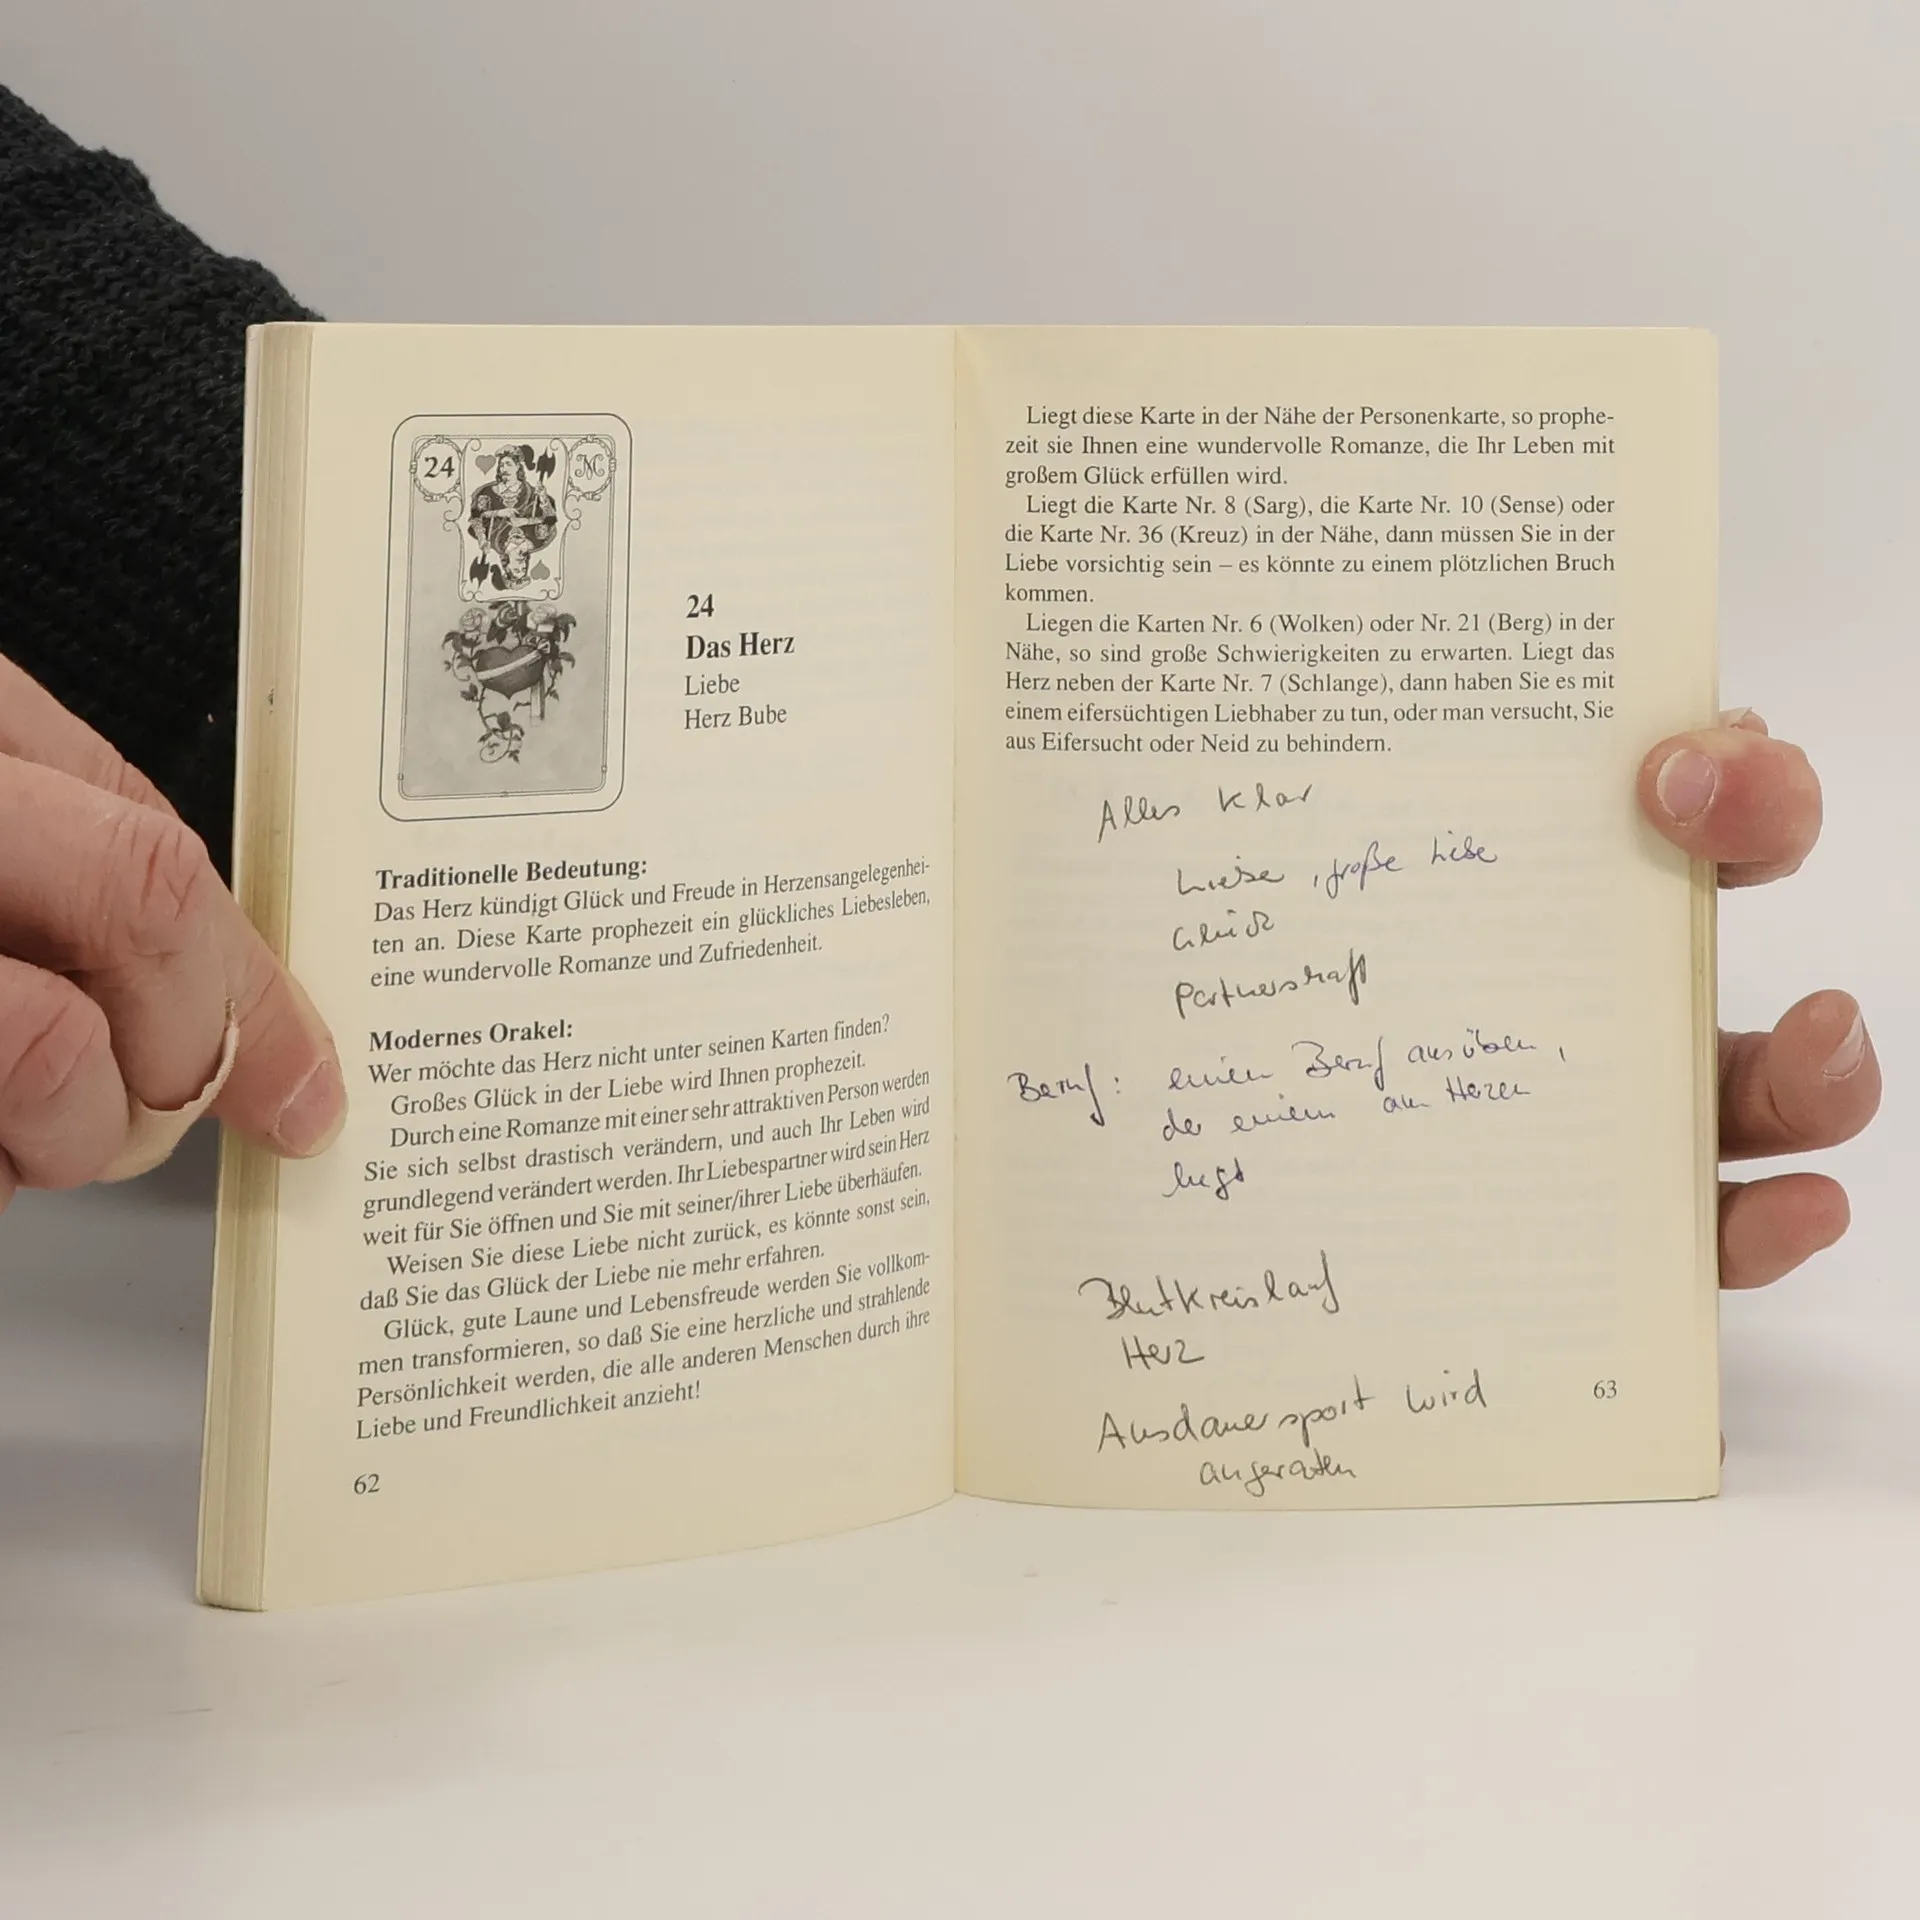 24
24
Das Herz
Liebe
Herz Bube
Traditionelle Bedeutung:
Das Herz kündigt Glück und Freude in Herzensangelegenhei-
ten an. Diese Karte prophezeit ein glückliches Liebesleben,
eine wundervolle Romanze und Zufriedenheit.
Modernes Orakel:
Wer möchte das Herz nicht unter seinen Karten finden?
Großes Glück in der Liebe wird Ihnen prophezeit.
Durch eine Romanze mit einer sehr attraktiven Person werden
Sie sich selbst drastisch verändern, und auch Ihr Leben wird
grundlegend verändert werden. Ihr Liebespartner wird sein Herz
weit für Sie öffnen und Sie mit seiner/ihrer Liebe überhäufen.
Weisen Sie diese Liebe nicht zurück, es könnte sonst sein,
daß Sie das Glück der Liebe nie mehr erfahren.
Glück, gute Laune und Lebensfreude werden Sie vollkom-
men transformieren, so daß Sie eine herzliche und strahlende
Persönlichkeit werden, die alle anderen Menschen durch ihre
Liebe und Freundlichkeit anzieht!
62
Liegt diese Karte in der Nähe der Personenkarte, so prophe-
zeit sie Ihnen eine wundervolle Romanze, die Ihr Leben mit
großem Glück erfüllen wird.
Liegt die Karte Nr. 8 (Sarg), die Karte Nr. 10 (Sense) oder
die Karte Nr. 36 (Kreuz) in der Nähe, dann müssen Sie in der
Liebe vorsichtig sein – es könnte zu einem plötzlichen Bruch
kommen.
Liegen die Karten Nr. 6 (Wolken) oder Nr. 21 (Berg) in der
Nähe, so sind große Schwierigkeiten zu erwarten. Liegt das
Herz neben der Karte Nr. 7 (Schlange), dann haben Sie es mit
einem eifersüchtigen Liebhaber zu tun, oder man versucht, Sie
aus Eifersucht oder Neid zu behindern.
Alles klar
Liebe, große Liebe
Glück
Partnerschaft
Beruf: einen Beruf ausüben,
der einem am Herzen
liegt
Blutkreislauf
Herz
Ausdauersport wird
angeraten
63